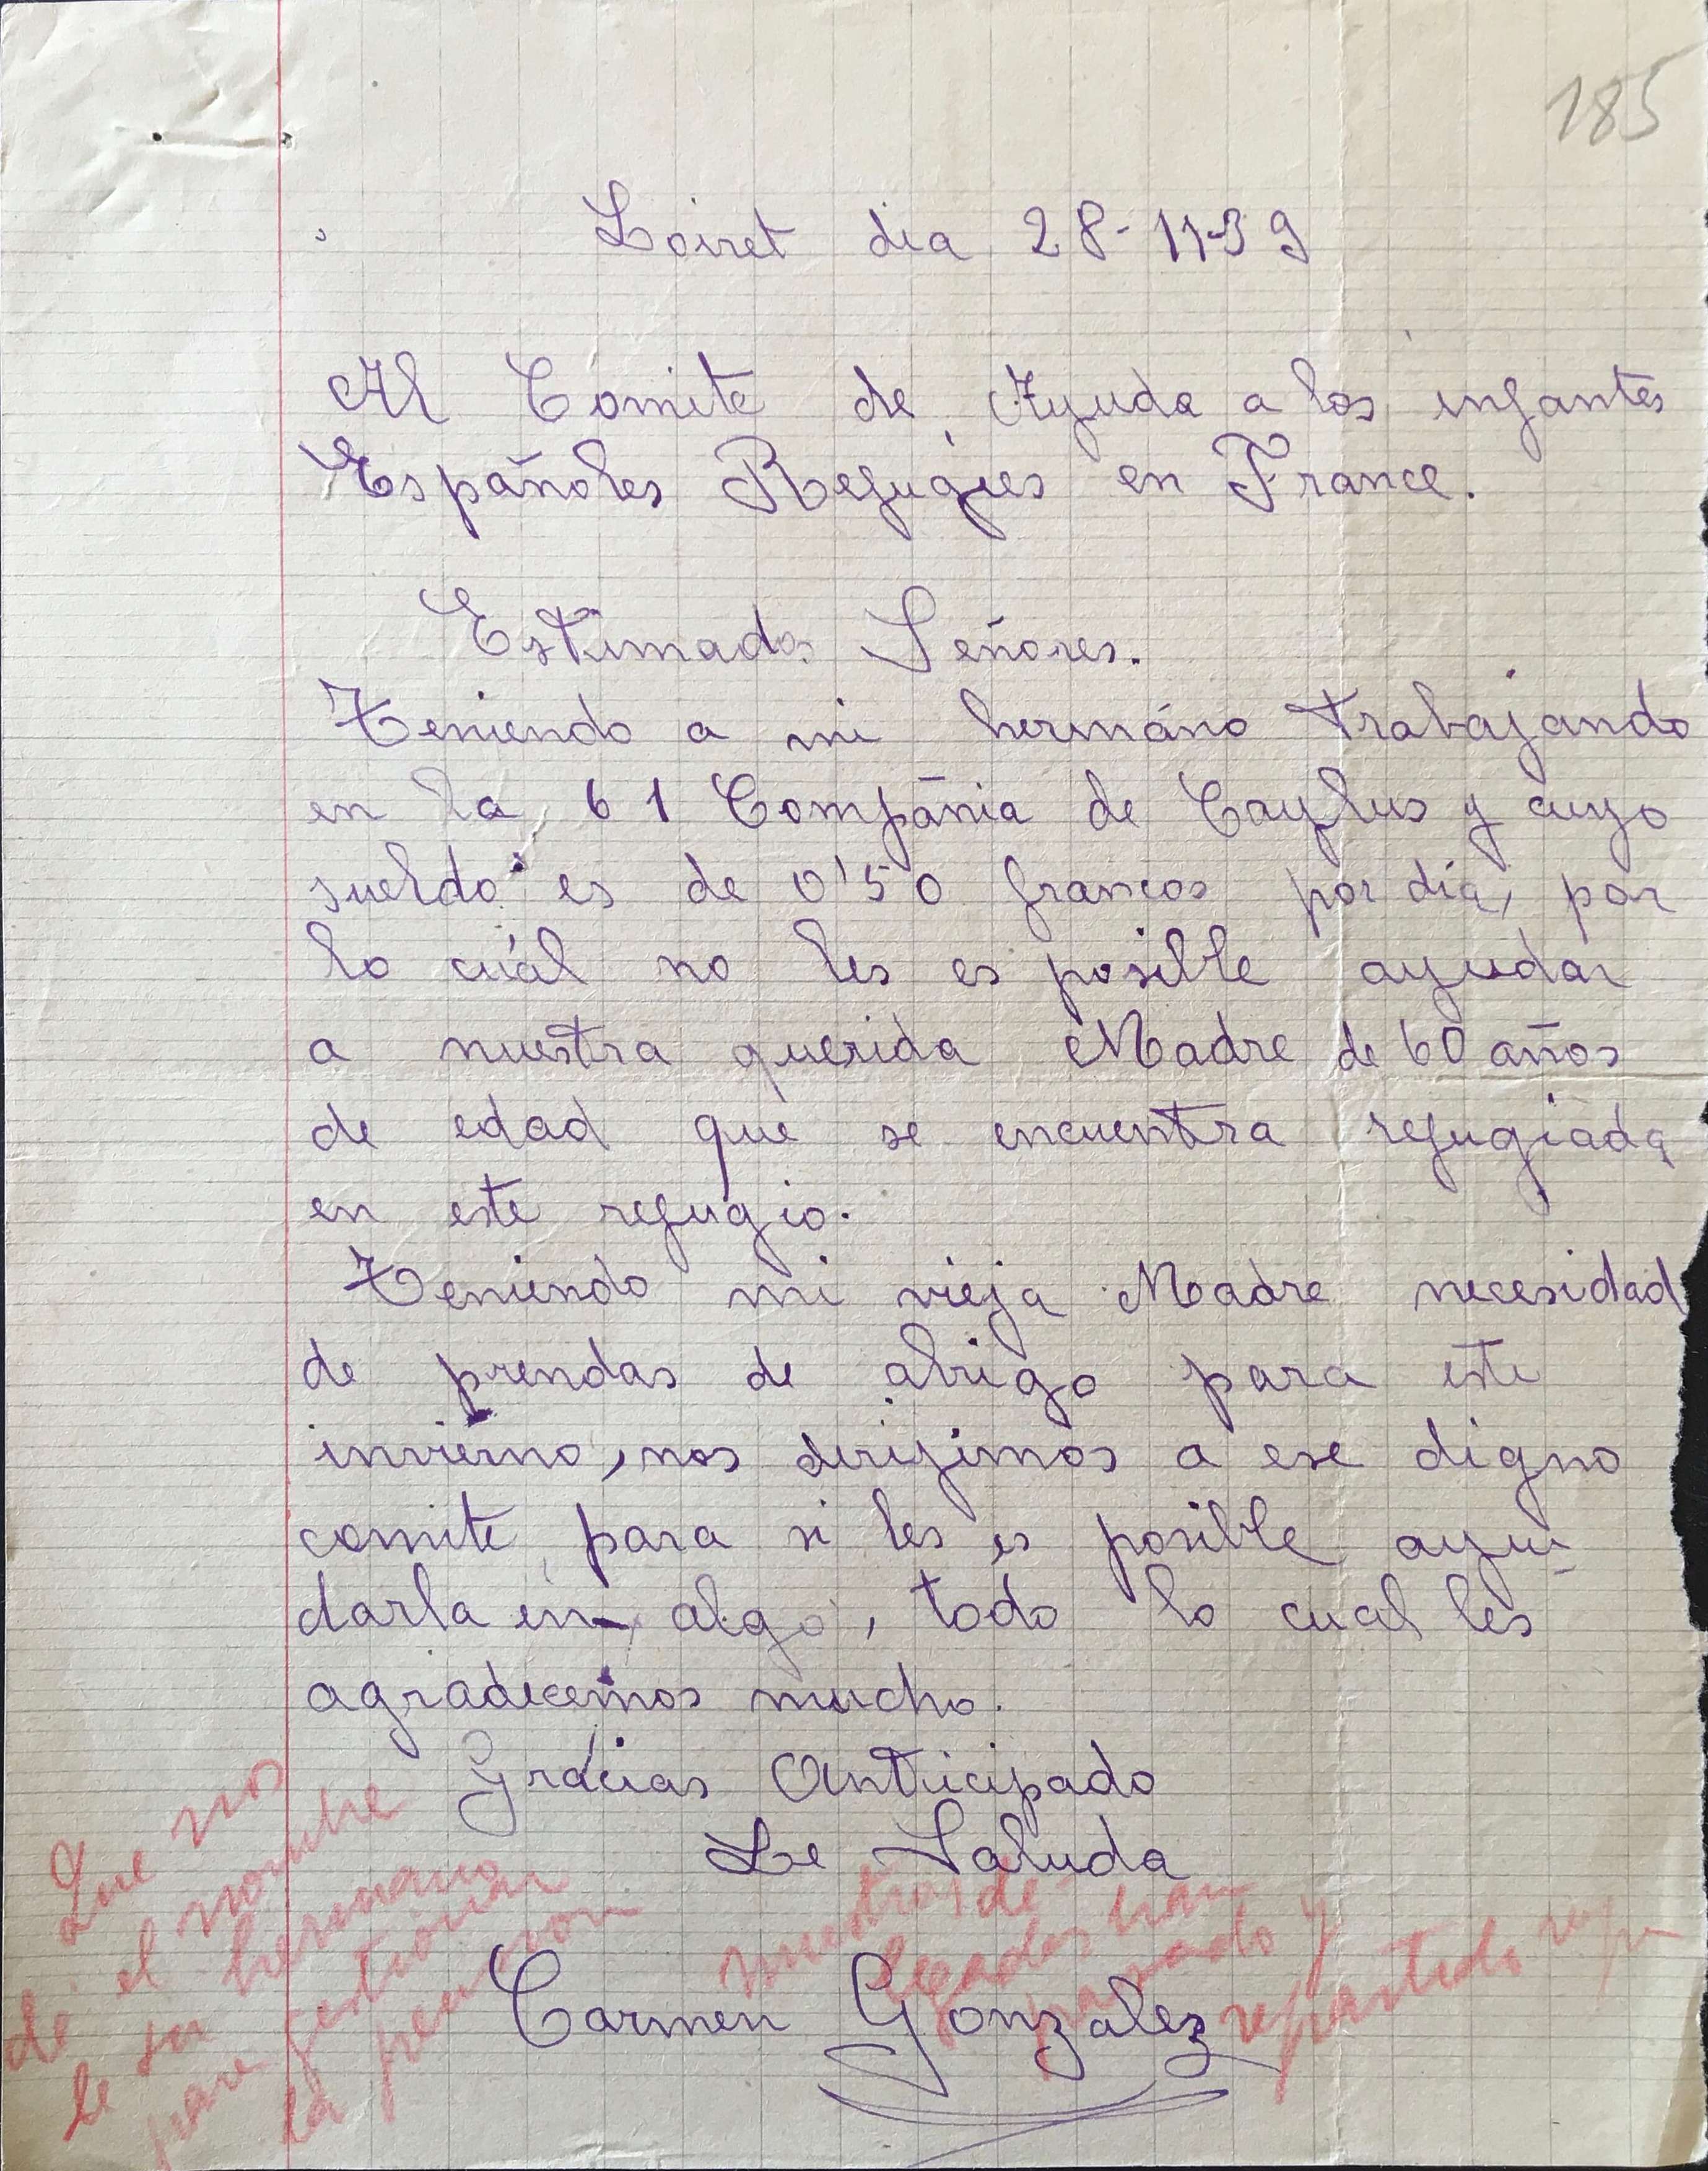 185
Loiret dia 28-11-39
Al Comite de Ayuda a los infantes
Españoles Refugies en France.
Estimados Señores.
Teniendo a mi hermáno trabajando
en la 61 Compañia de Caylus y cuyo
sueldo es de 0'50 francos por dia, por
lo cuál no les es posible ayudar
a nuestra querida Madre de 60 años
de edad que se encuentra refugiada
en este refugio.
Teniendo mi vieja Madre necesidad
de prendas de abrigo para este
invierno, nos dirijimos a ese digno
comite para si les es posible ayu-
darla en algo, todo lo cual les
agradecemos mucho.
Grácias Anticipado
Le Saluda
Carmen Gonzalez
Que nos
dé el nombre
de su hermano
para gestionar
la pension
nuestros de-
legados han
pasado y
repartido